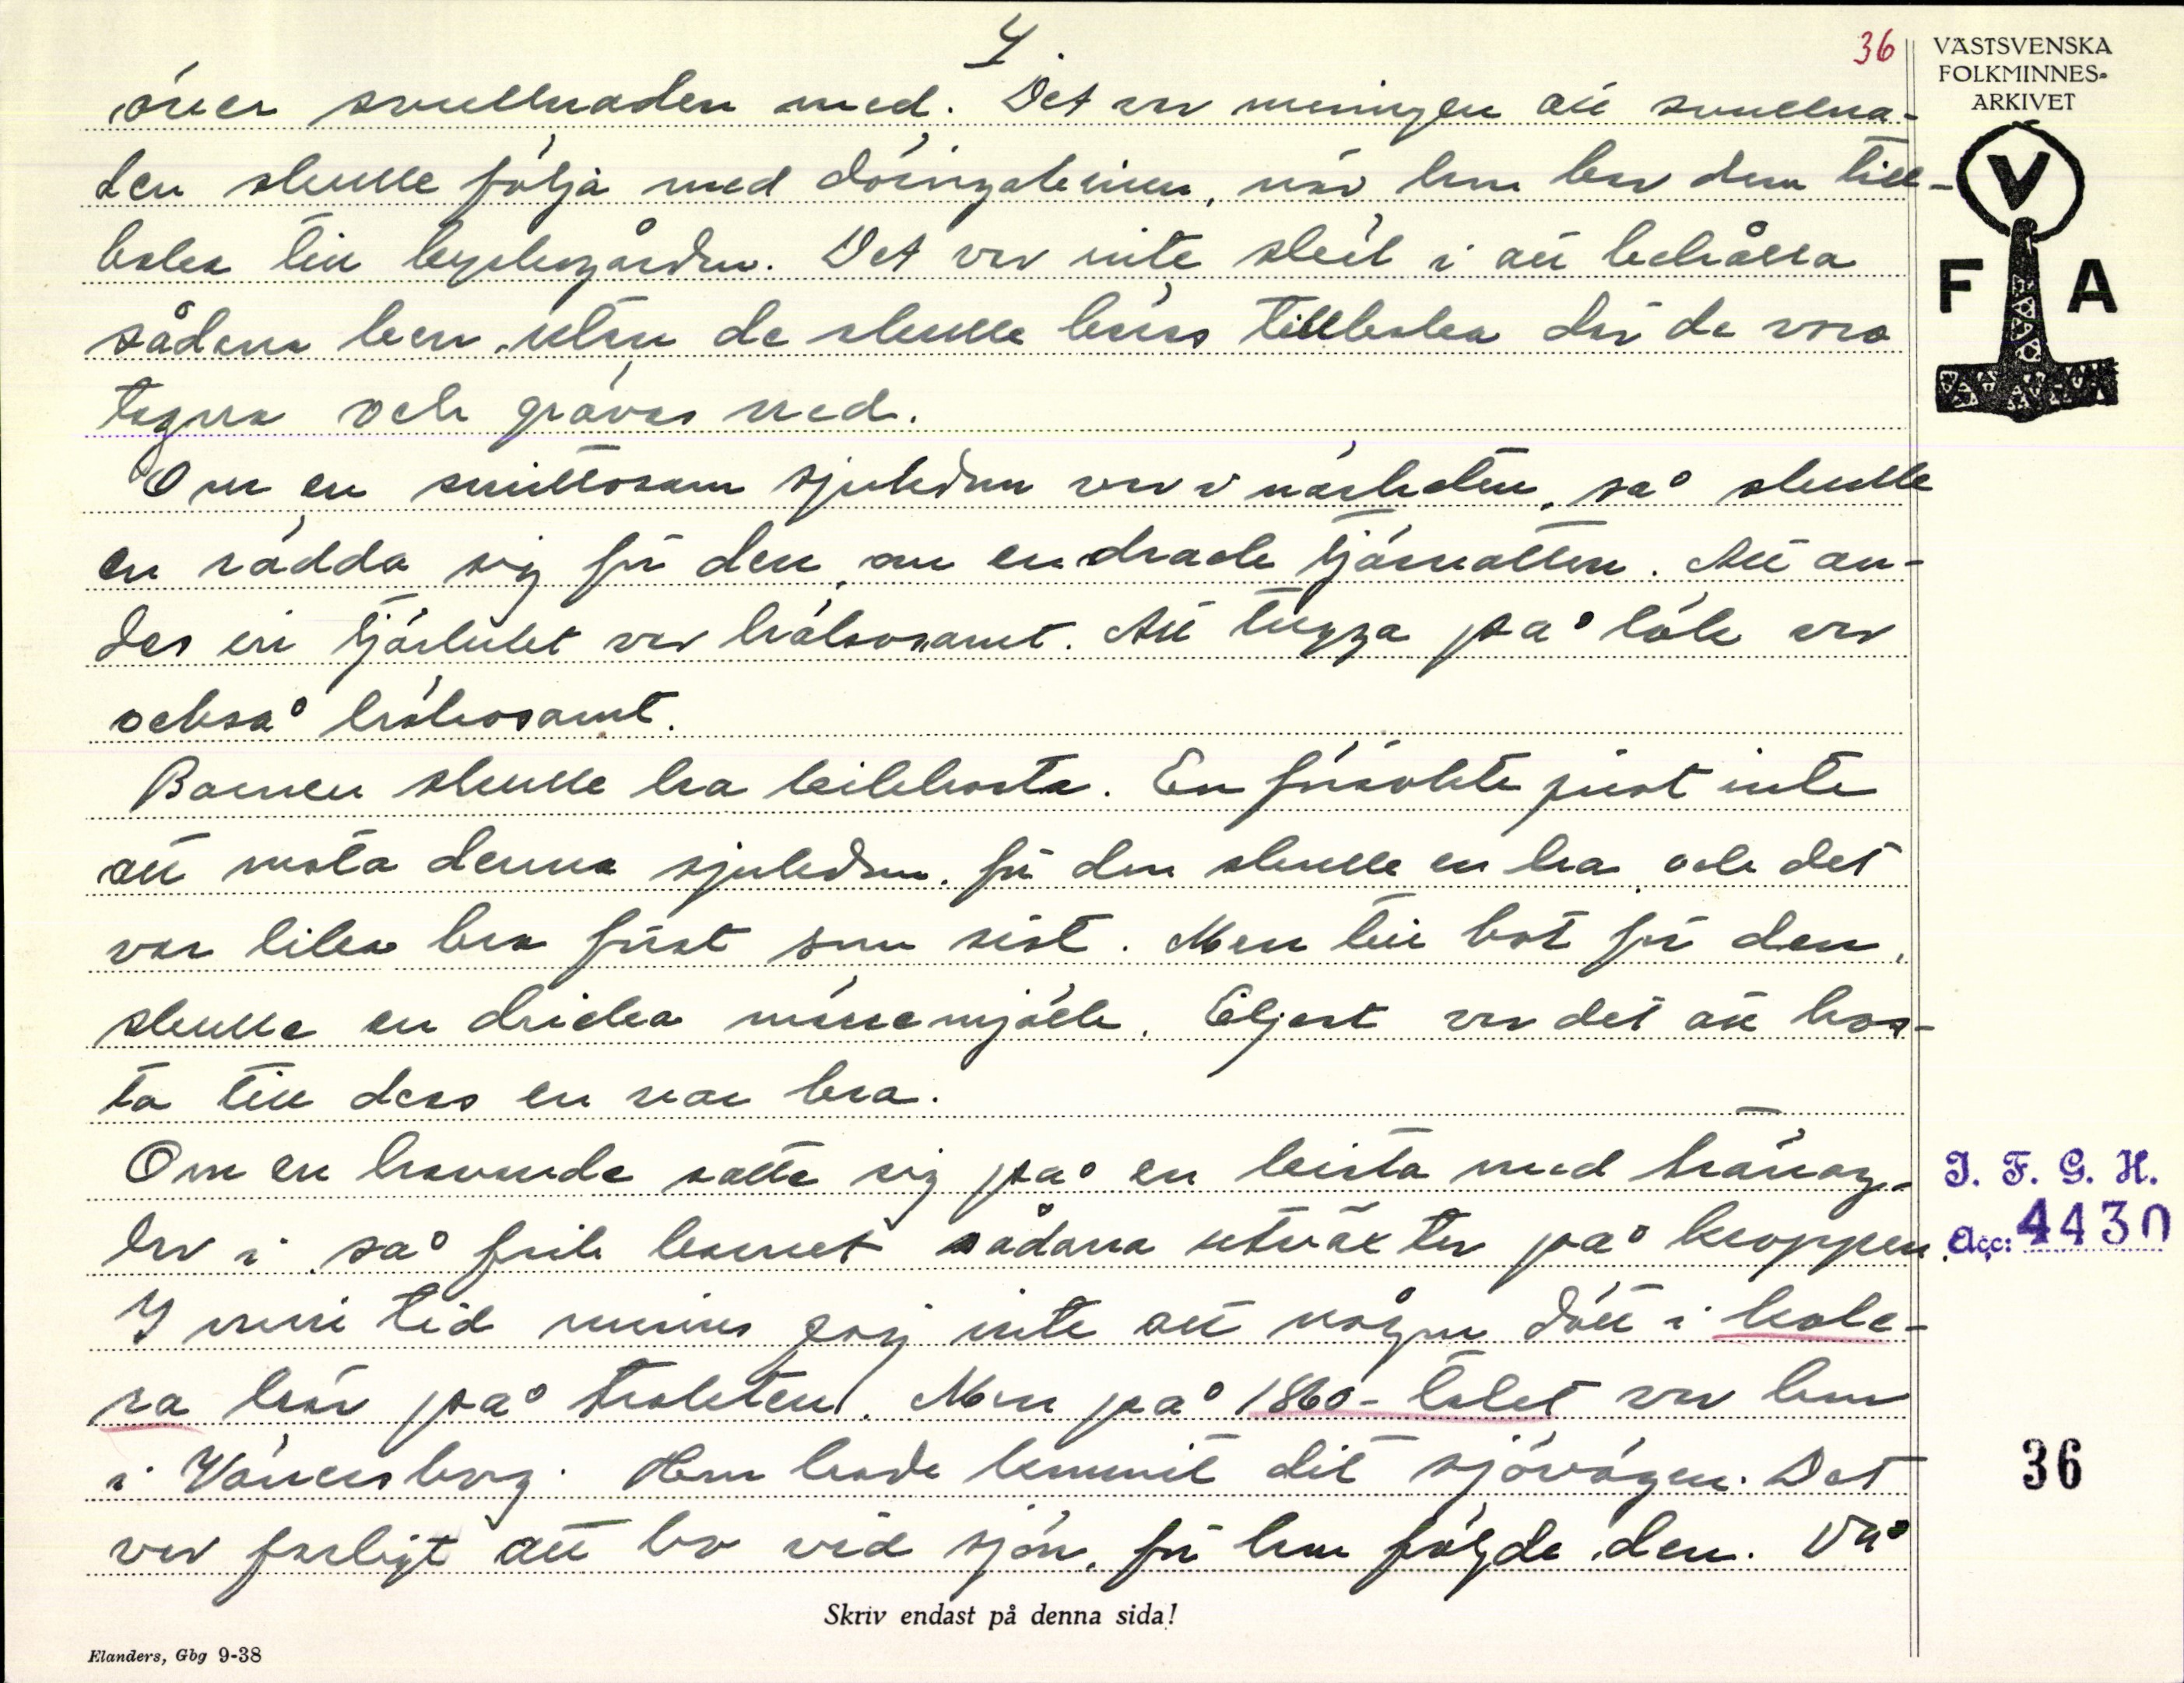 4.
36
VÄSTSVENSKA
FOLKMINNES-
ARKIVET
V
F A
över svullnaden med. Det var meningen att svullna-
den skulle följa med döingabenen, när han bar dem till-
baka till kyrkogården. Det var inte skäl i att behålla
sådana ben, utan de skulle bäras tillbaka där de voro
tagna och grävas ned.
Om en smittosam sjukdom var i närheten, så skulle
en rädda sig för den, om en drack tjärvatten. Att an-
das in tjärlukt var hälsosamt. Att tugga på lök var
också hälsosamt.
Barnen skulle ha kikhosta. En försökte just inte
att mota denna sjukdom, för den skulle en ha, och det
var lika bra först som sist. Men till bot för den,
skulle en dricka märremjölk. Eljest var det att hos-
ta till dess en var bra.
Om en havande satte sig på en kista med träknag-
lar i, så fick barnet sådana utväxter på kroppen.
I min tid minns jag inte att någon dött i kole-
ra här på trakten. Men på 1860-talet var han
i Vänersborg. Han hade kommit dit sjövägen. Det
var farligt att bo vid sjön, för han följde den. Vå
J. F. G. H.
Acc: 4430
36
Skriv endast på denna sida!
Elanders, Gbg 9-38